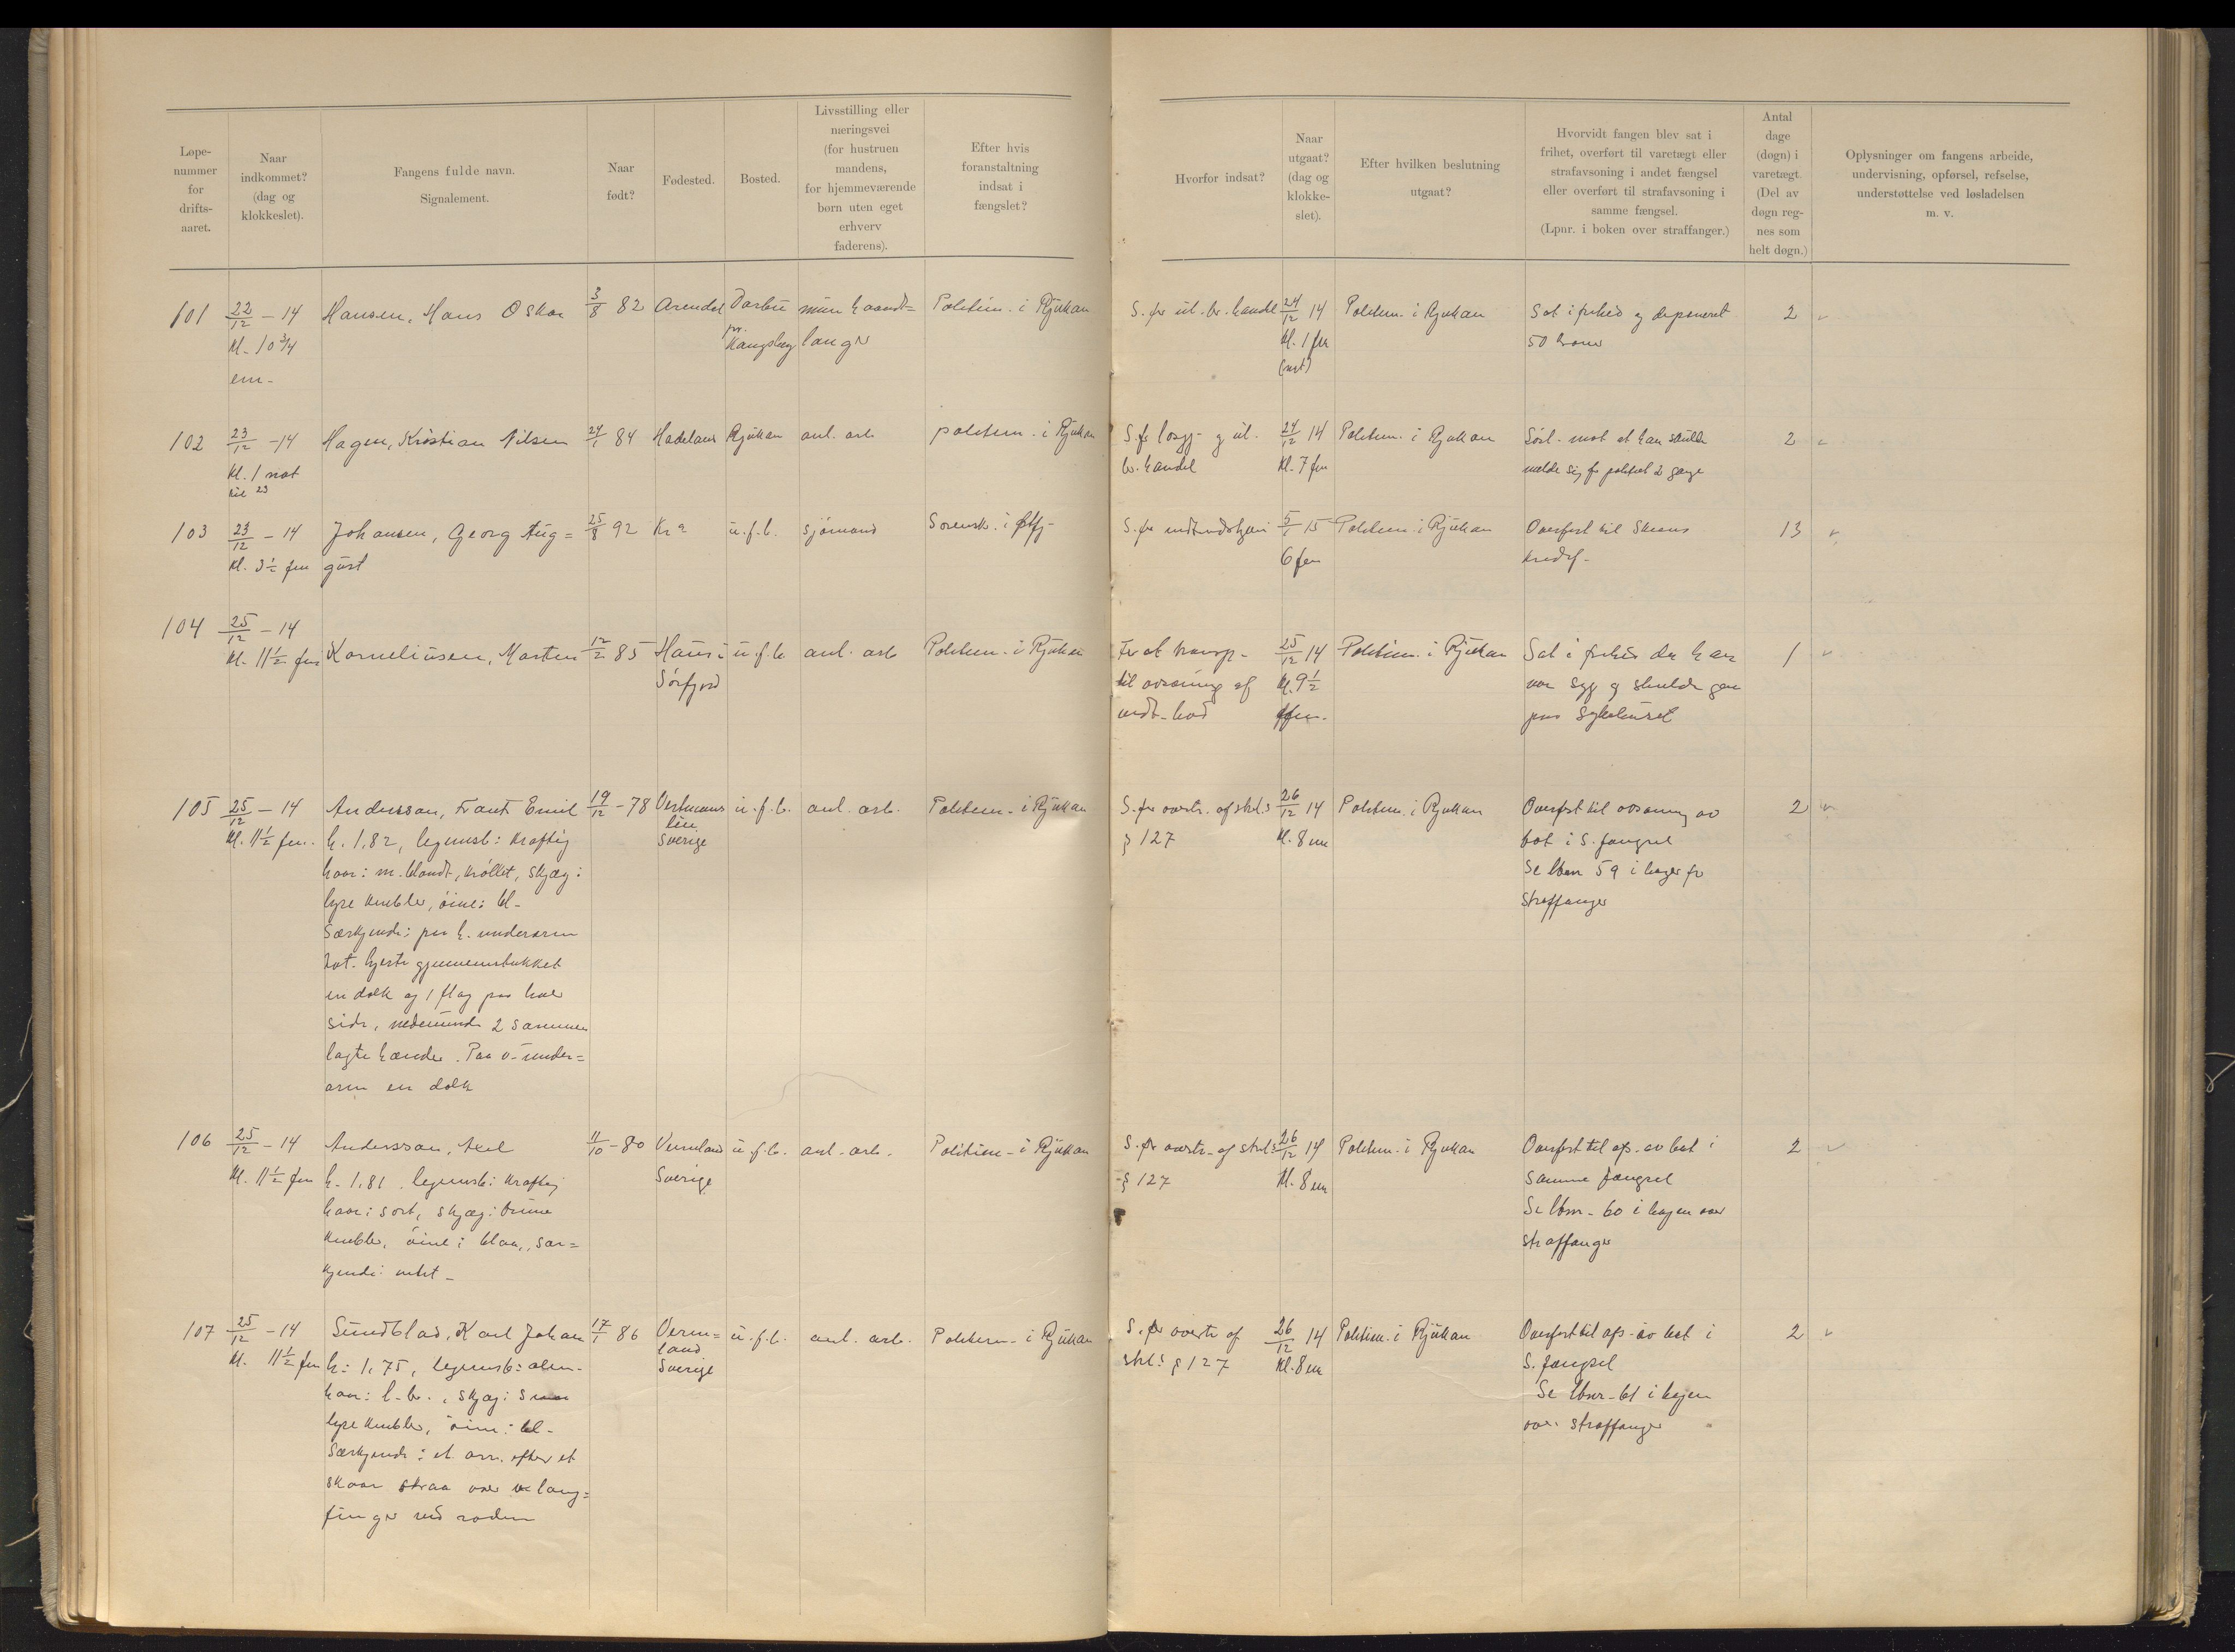 Løpe-
nummer
for
drifts-
aaret.
Naar
indkommet?
(dag og
klokkeslet).
Fangens fulde navn.
Signalement.
Naar
født?
Fødested.
Bosted.
Livsstilling eller
næringsvei
(for hustruen
mandens,
for hjemmeværende
børn uten eget
erhverv
faderens).
Efter hvis
foranstaltning
indsat i
fængslet?
Hvorfor indsat?
Naar
utgaat?
(dag og
klokke-
slet).
Efter hvilken beslutning
utgaat?
Hvorvidt fangen blev sat i
frihet, overført til varetægt eller
strafavsoning i andet fængsel
eller overført til strafavsoning i
samme fængsel.
(Lpnr. i boken over straffanger.)
Antal
dage
(døgn) i
varetægt.
(Del av
døgn reg-
nes som
helt døgn.)
Oplysninger om fangens arbeide,
undervisning, opførsel, refselse,
understøttelse ved løsladelsen
m. v.
101
22/12 - 14
Kl. 10 3/4
em.
Hansen, Hans Oskar
3/8 82
Arendal
Darbu
pr.
Kongsberg
min haandt=
langer
Politim. i Rjukan
S. for ul. br. handel
24/12 14
Kl. 1 fm
(nat)
Politim. i Rjukan
Sat i frihed og deponeret
50 kroner
2
102
23/12 - 14
Kl. 1 nat
til 23
Hagen, Kristian Nilsen
24/1 84
Hadeland
Rjukan
anl. arb
politim. i Rjukan
S. for losgj- og ul.
br. handel
24/12 14
Kl. 7 fm
Politim. i Rjukan
Løsl. mot at han skulde
melde sig for politiet 2 gange
2
103
23/12 - 14
Kl. 3 1/2 fm
Johansen, Georg Aug=
gust
25/8 92
Kr a
u. f. b.
sjømand
Sorensk. i
S. for
5/1 15
6 fm
Politim. i Rjukan
Overført til Skiens
kredsf-
13
104
25/12 - 14
Kl. 11 1/2 fm
Korneliusen, Marten
12/2 85
Haus i
Sørfjord
u. f. b.
anl. arb
Politim. i Rjukan
For at transp-
til avsoning af
indt. bod
25/12 14
Kl. 9 1/2
fm.
Politim. i Rjukan
Sat i frihed da han
var syg og skulde gaa
paa Sykehuset
1
105
25/12 - 14
Kl. 11 1/2 fm.
Andersson, Frants Emil
h. 1.82, legemsb: kraftig
haar: m. blondt, krøllet, skjæg:
lyse knebler, øine: bl-
Særkjende: paa h. underarm
tat. hjerte gjennemstukket
en dolk og 1 flag paa hver
side, nedenunder 2 sammen
lagte hænder. Paa v. under=
arm en dolk
19/12 - 78
Vestmans
län
Sverige
u. f. b.
anl. arb.
Politim. i Rjukan
S. for overtr. af strl.s
§ 127
26/12 14
Kl. 8 em
Politim. i Rjukan
Overført til avsoning av
bot i S. fængsel
Se lbnr 59 i bogen for
straffanger
2
106
25/12 - 14
Kl. 11 1/2 fm
Andersson, Axel
h. 1.81. legemsb: kraftig
haar: sort, skjæg: brune
knebler, øine: blaa, sær=
kjende: intet -
11/10 - 80
Vermland
Sverige
u. f. b.
anl. arb.
Politim. i Rjukan
S. for overtr. af strl.s
§ 127
26/12 14
Kl. 8 em
Politim. i Rjukan
Overført til afs. av bot i
samme fængsel
Se lbnr. 60 i bogen over
straffanger
2
107
25/12 - 14
Kl. 11 1/2 fm
Sundblad, Karl Johan
h: 1.75, legemsb: alm-
haar: l-b., skjæg: smaa
lyse knebler, øine: bl-
Særkjende: et arr efter et
skaar skraa over v lang=
finger ved roden
17/1 86
Verm=
land
Sverige
u. f. b.
anl. arb.
Politim. i Rjukan
S. for overtr af
strl.s § 127
26/12 14
Kl. 8 em
Politim. i Rjukan
Overført til afs. av bot i
S. fængsel
Se lbnr. 61 i bogen
over straffanger
2